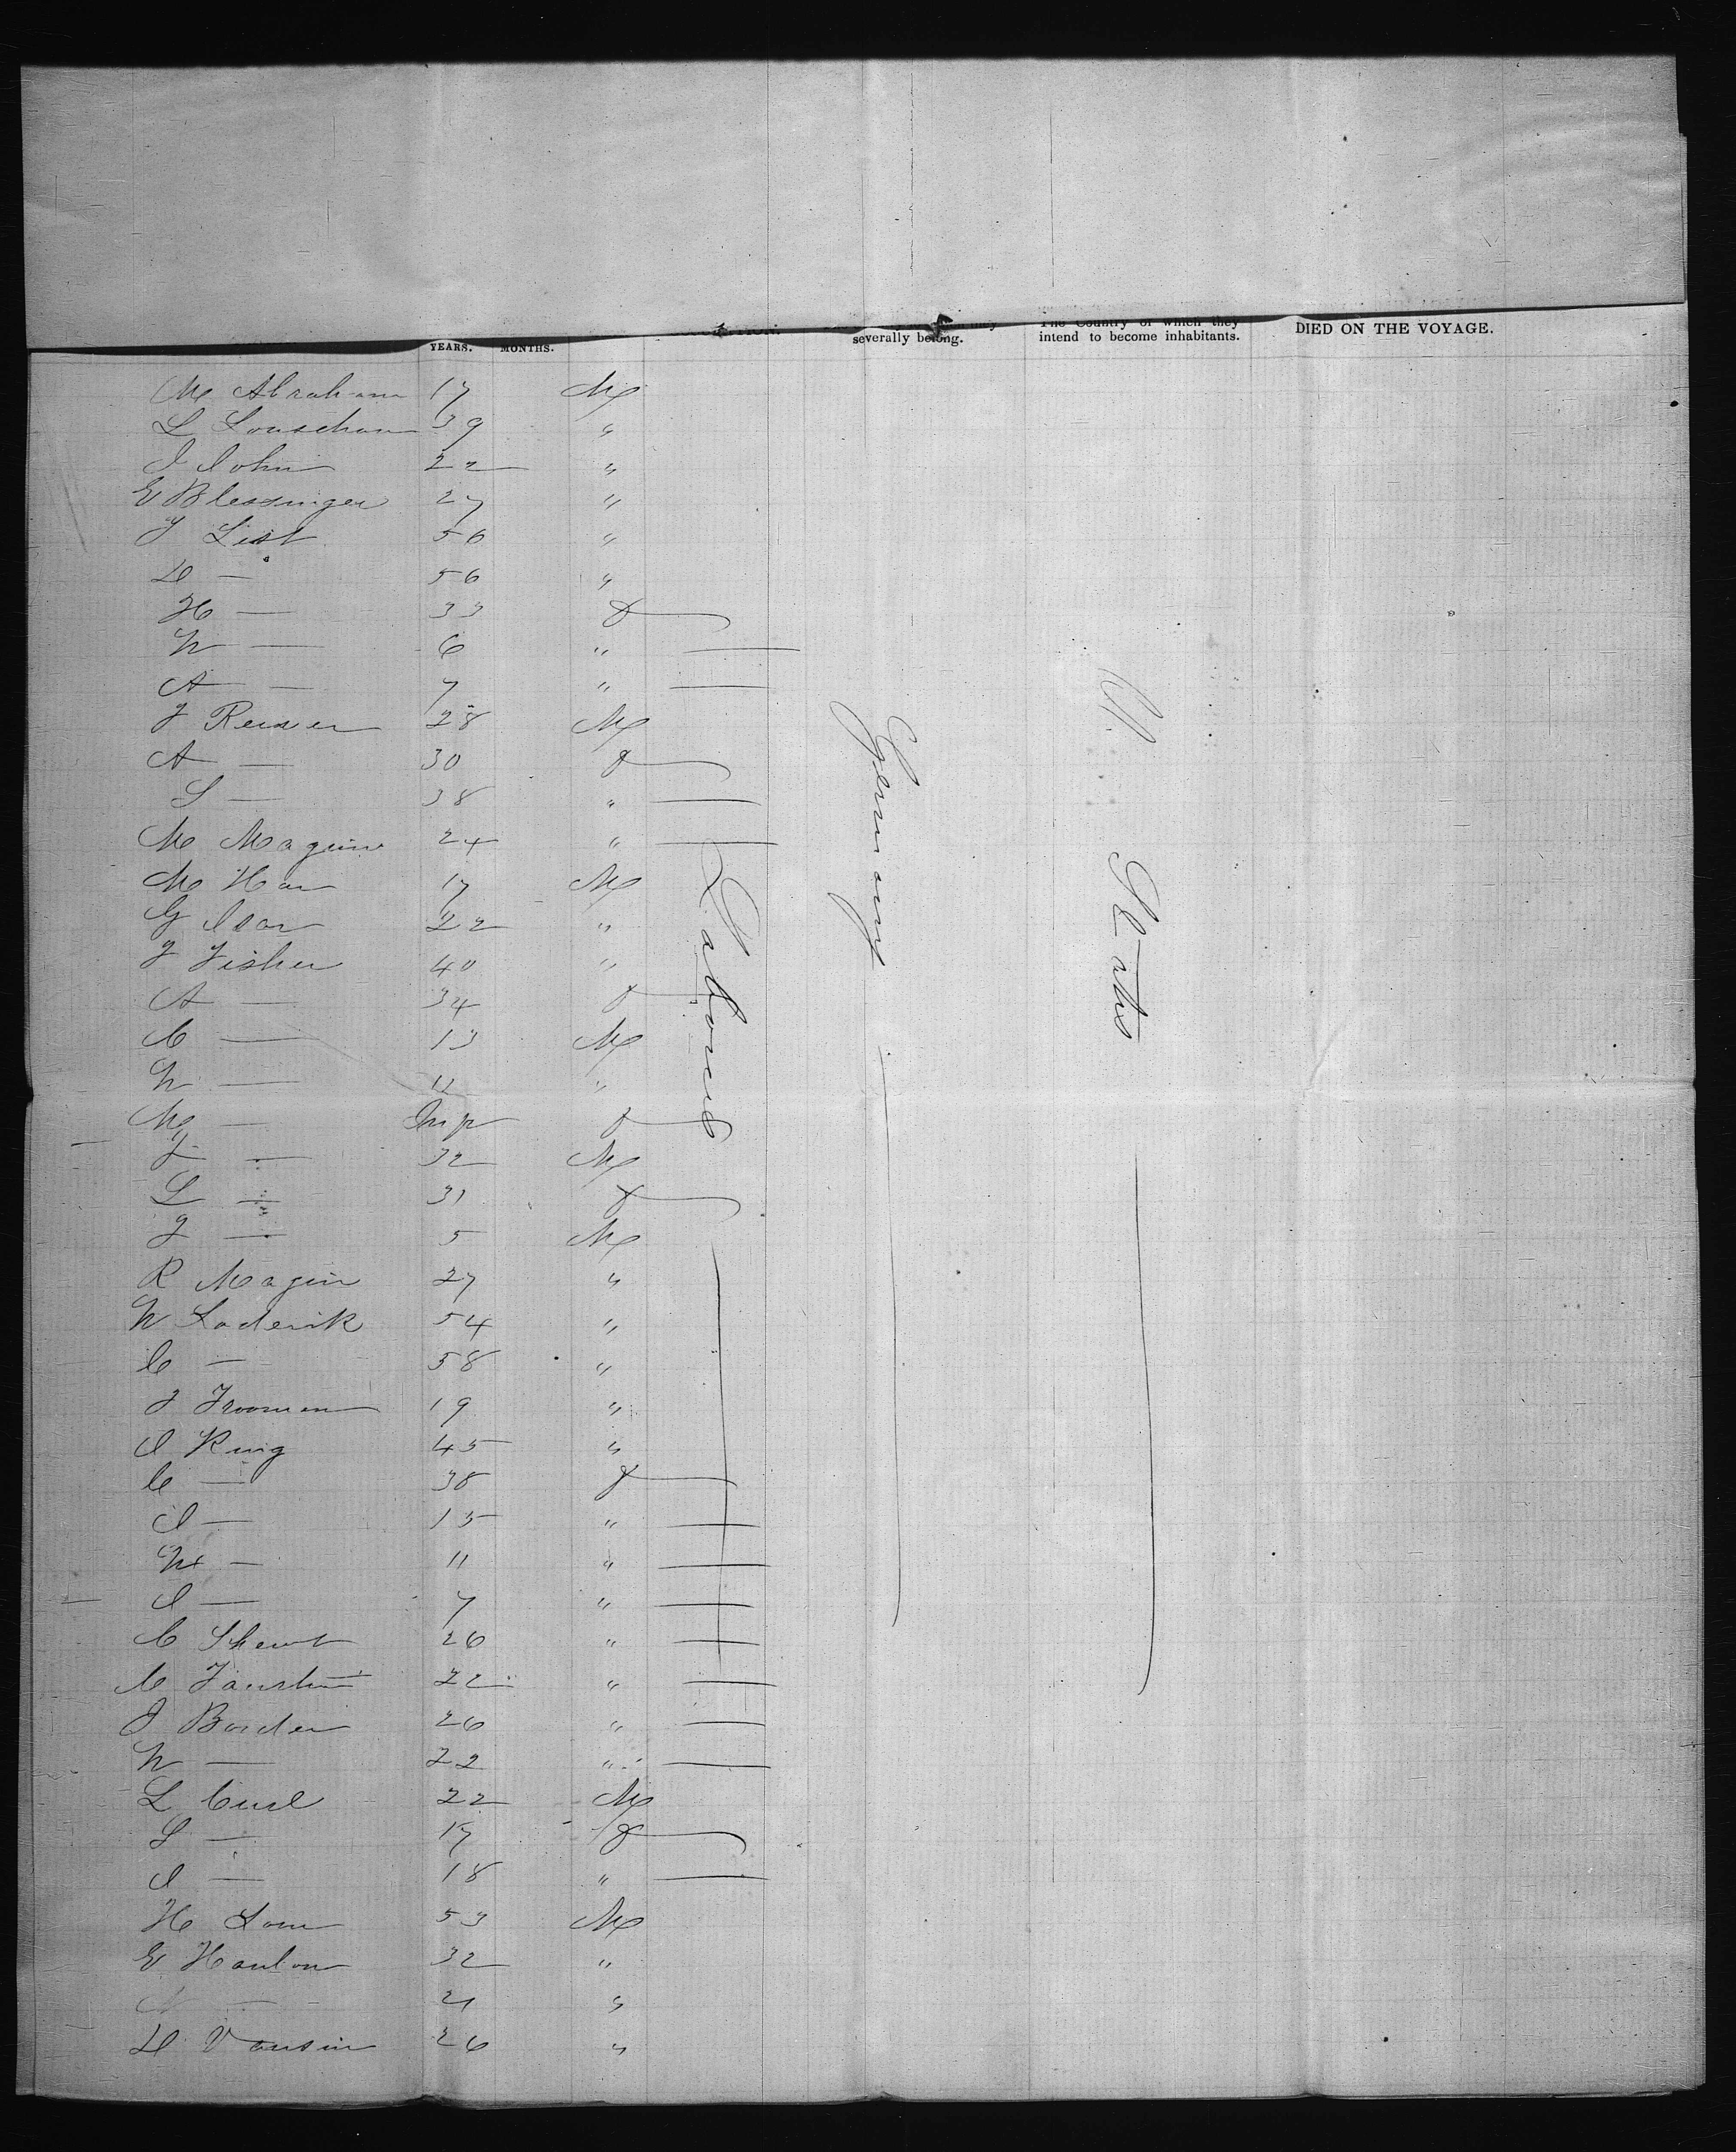 YEARS. MONTHS. severally belong. The Country of which they intend to become inhabitants. DIED ON THE VOYAGE.
M Abraham 17 M
L Louschom 39 "
J John 22 "
E Blessinger 27 "
J List 56 "
D — 56 "
H — 33 F
N — 6 " —
A — 7 " —
J Reiser 28 M
A — 30 F
S — 38 " —
M Maguire 24 " —
M Han 17 M
G Isar 22 "
J Fisher 40 "
A — 34 F
C — 13 M
N — 11 "
M — Inf F
J — 32 M
L — 31 F
J — 5 M
R Magin 27 "
N Laderik 54 "
C — 58 "
J Frooman 19 "
J King 45 "
C — 38 F
J — 15 " —
M — 11 " —
J — 7 " —
C 26 " —
C 22 " —
J Border 26 " —
N — 22 " —
L Curl 22 M
S — 17 F
J — 18 " —
H Lom 53 M
E Hanlon 32 "
— 21 "
D Vausin 26 "
Labourers
Germany
U. States